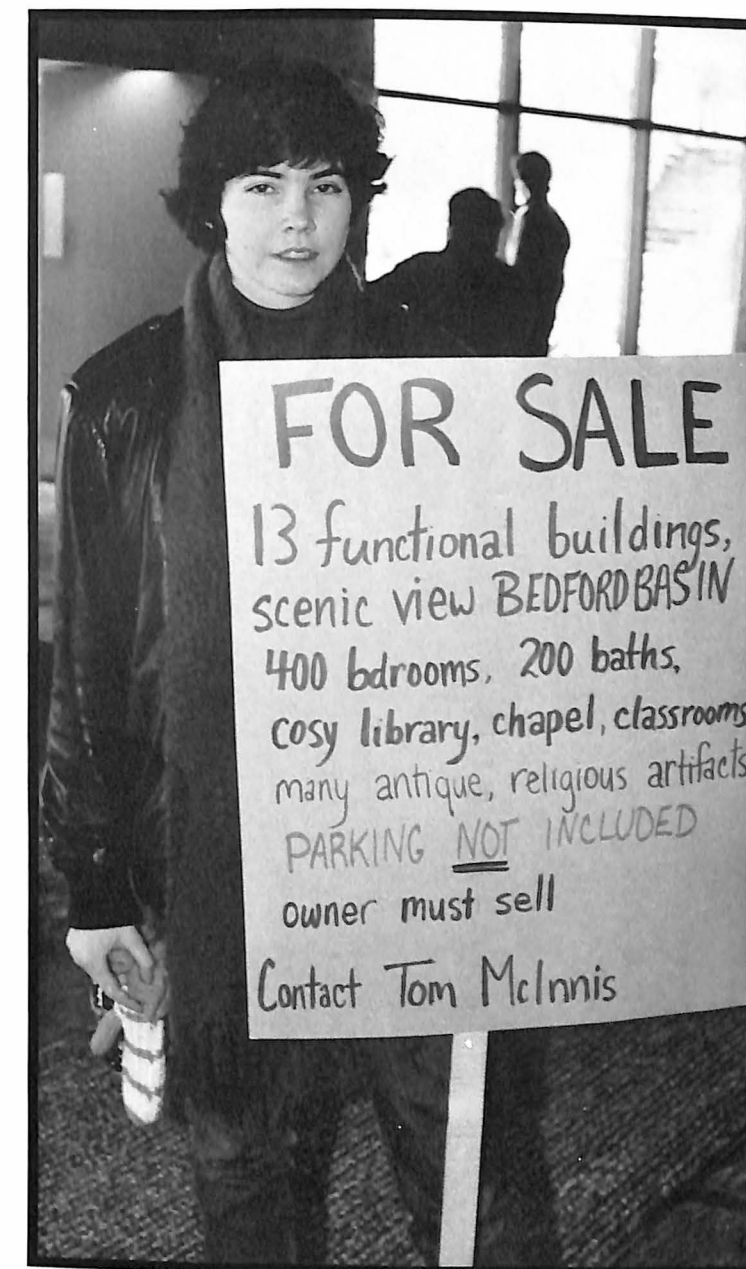 FOR SALE
13 functional buildings,
scenic view BEDFORD BASIN
400 bdrooms, 200 baths,
cosy library, chapel, classrooms
many antique, religious artifacts
PARKING NOT INCLUDED
owner must sell
Contact Tom McInnis